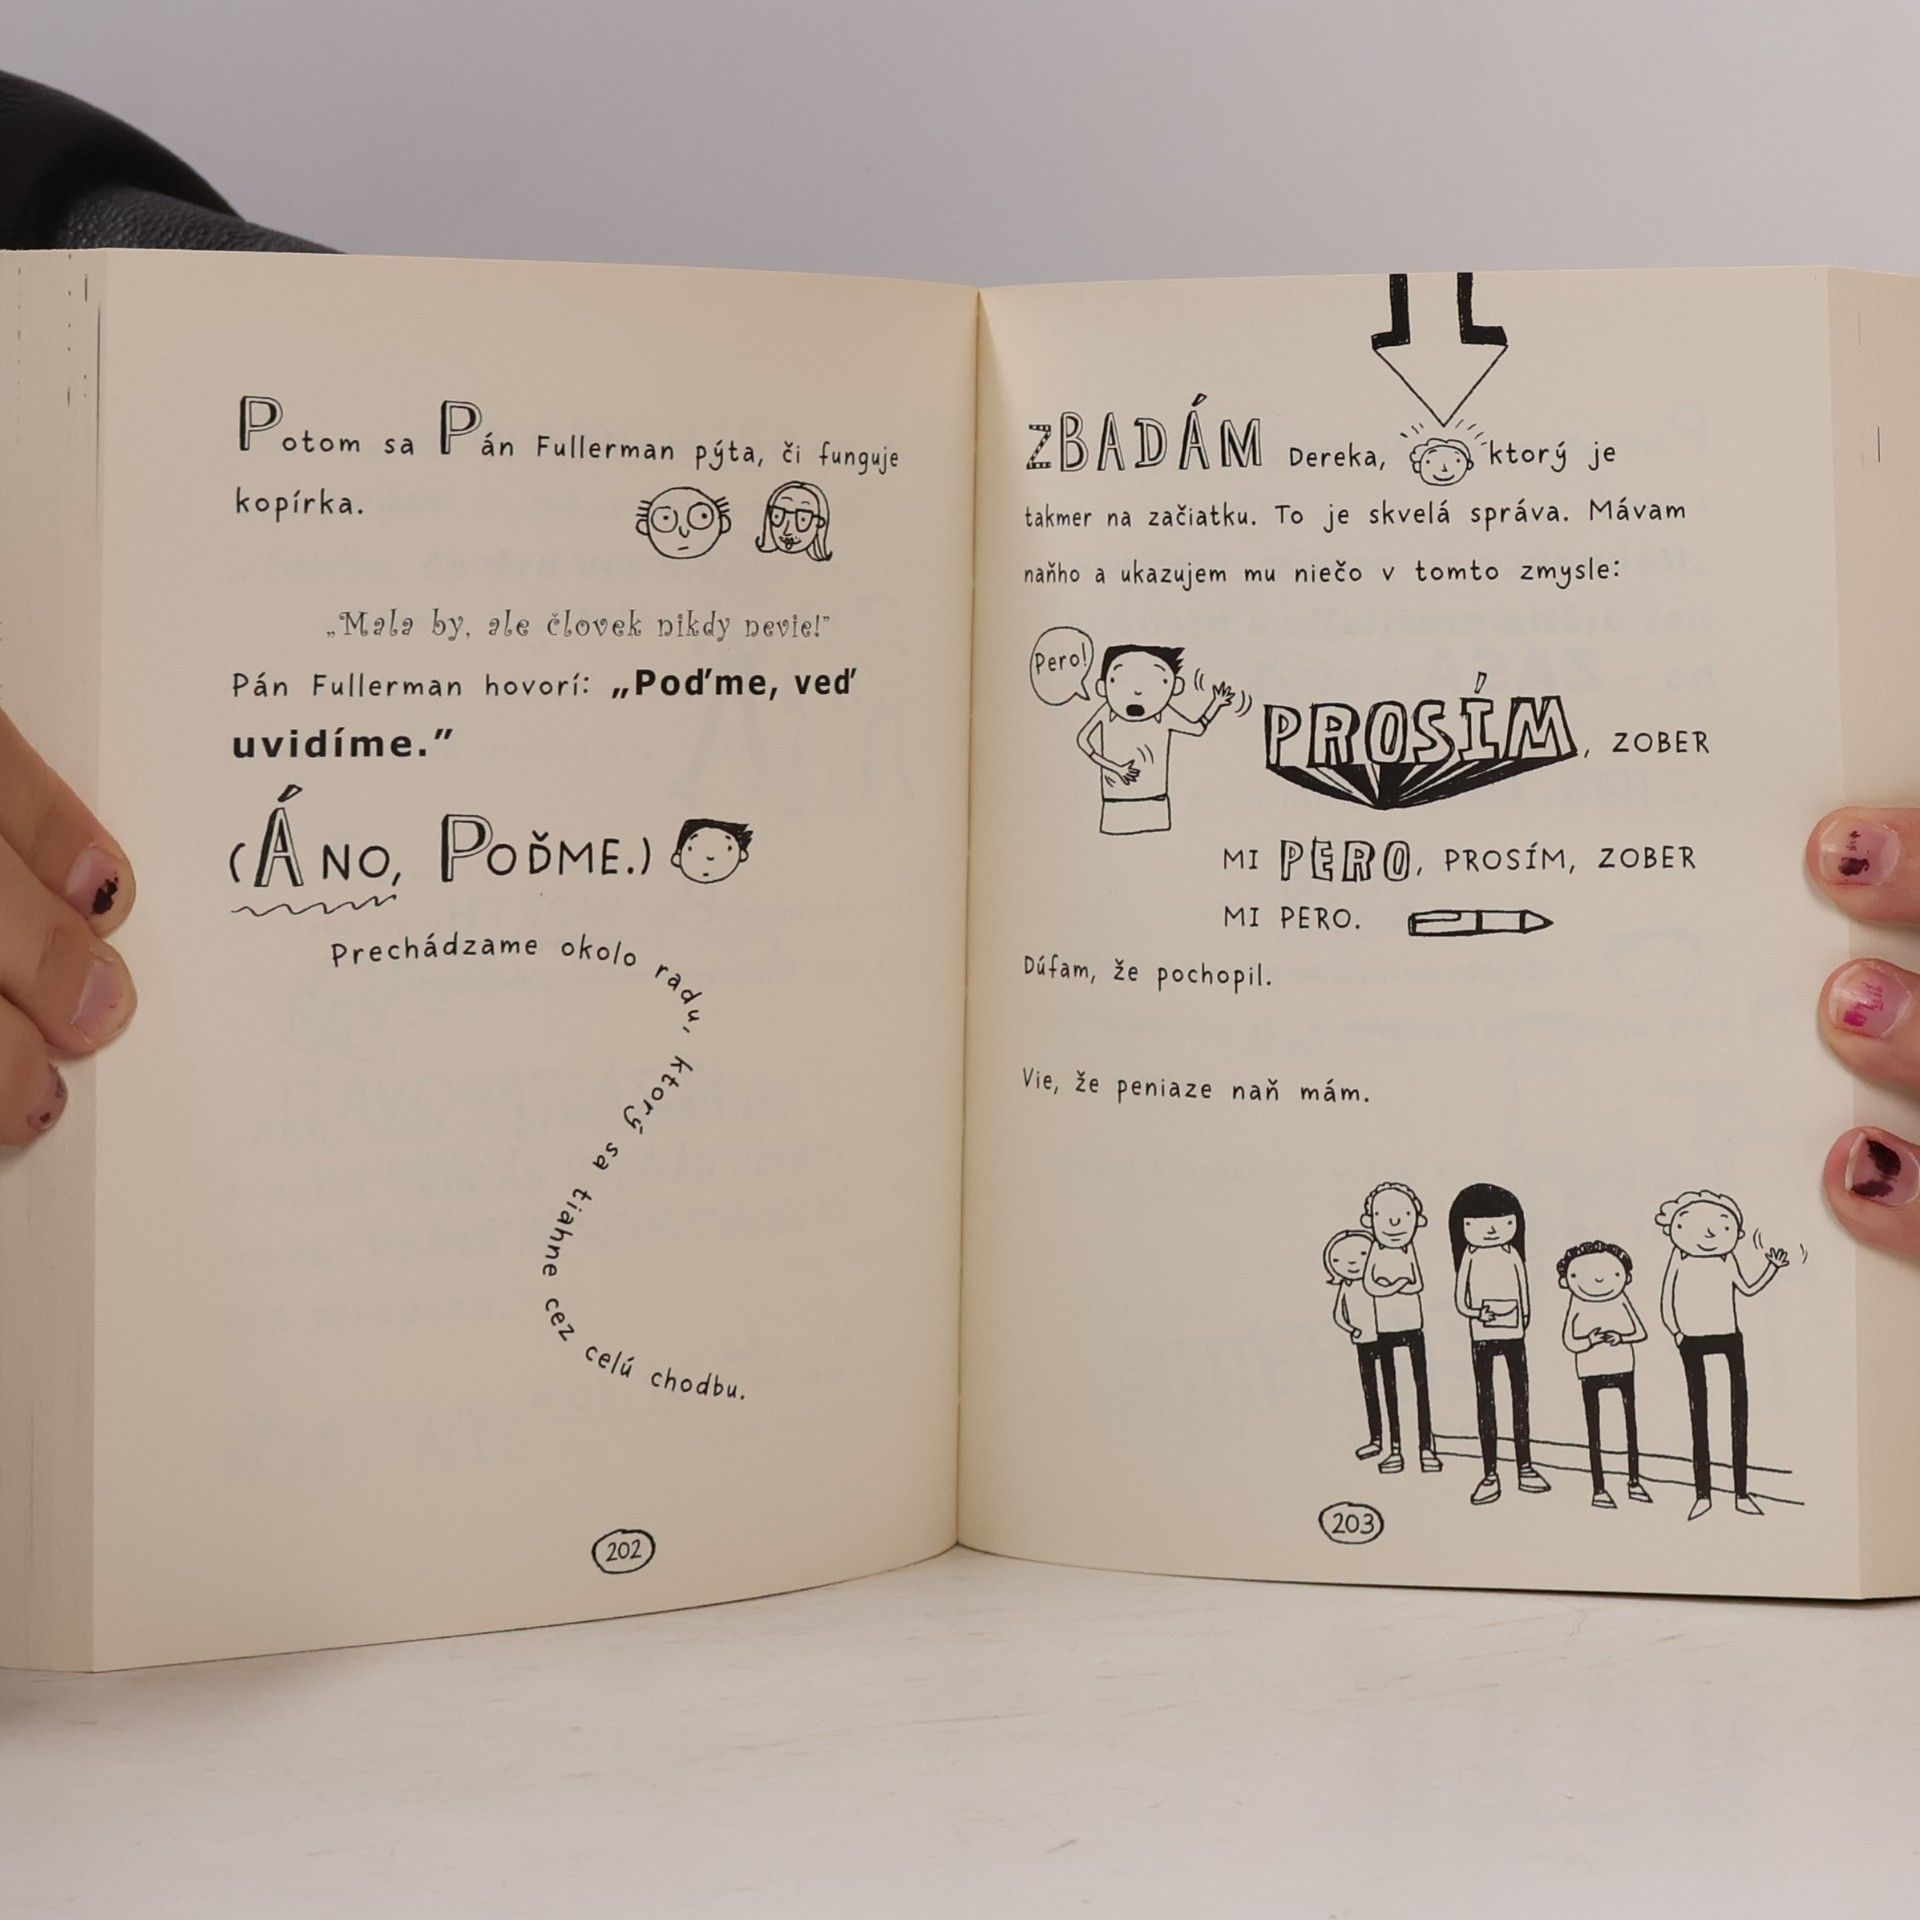 Potom sa Pán Fullerman pýta, či funguje
kopírka.
„Mala by, ale človek nikdy nevie!”
Pán Fullerman hovorí: „Poďme, veď
uvidíme.”
(ÁNO, POĎME.)
Prechádzame okolo radu, ktorý sa tiahne cez celú chodbu.
202
ZBADÁM Dereka, ktorý je
takmer na začiatku. To je skvelá správa. Mávam
naňho a ukazujem mu niečo v tomto zmysle:
Pero!
PROSÍM, ZOBER
MI PERO, PROSÍM, ZOBER
MI PERO.
Dúfam, že pochopil.
Vie, že peniaze naň mám.
203